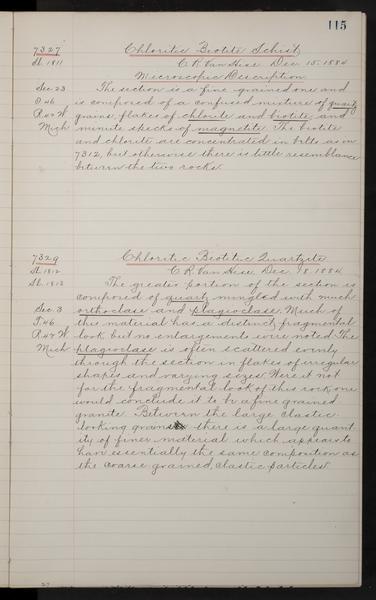 115
7327 Chloritic Biotite Schist
Sl. 1811 C. R. Van Hise Dec. 15. 1884
Microscopic Description
Sec 23 The section is a fine grained one and
T. 46 is composed of a confused mixture of quartz
R. 42 W grains, flakes of chlorite and biotite, and
Mich minute specks of magnetite. The biotite
and chlorite are concentrated in belts as in
7312, but otherwise there is little resemblance
between the two rocks.
7329 Chloritic Biotitic Quartzite
Sl. 1812 C. R. Van Hise, Dec. 18. 1884
Sl. 1813 The greater portion of the section is
composed of quartz mingled with much
Sec. 3 orthoclase and plagioclase. Much of
T. 46 this material has a distinct fragmental
R. 42 W. look but no enlargements were noted. The
Mich plagioclase is often scattered evenly
through the section in flakes of irregular
shapes and varying sizes. Were it not
for the fragmental look of this rock, one
would conclude it to be a fine grained
granite. Between the large clastic
looking grains there is a large quant
ity of finer material which appears to
have essentially the same composition as
the coarse grained, clastic particles.